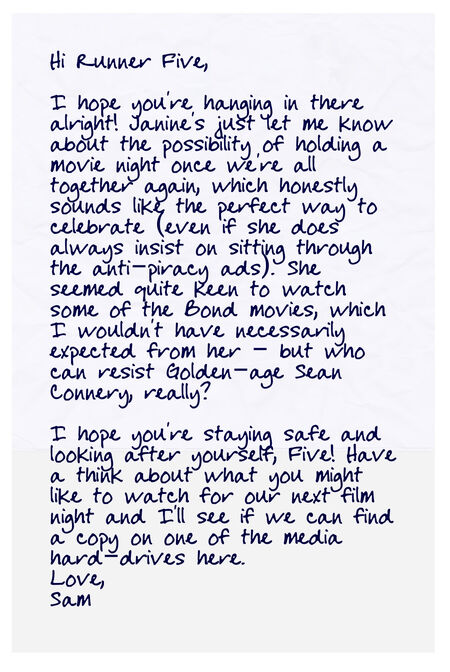 Hi Runner Five,
I hope you're hanging in there
alright! Janine's just let me know
about the possibility of holding a
movie night once we're all
together again, which honestly
sounds like the perfect way to
celebrate (even if she does
always insist on sitting through
the anti-piracy ads). She
seemed quite keen to watch
some of the Bond movies, which
I wouldn't have necessarily
expected from her - but who
can resist Golden-age Sean
Connery, really?
I hope you're staying safe and
looking after yourself, Five! Have
a think about what you might
like to watch for our next film
night and I'll see if we can find
a copy on one of the media
hard-drives here.
Love,
Sam